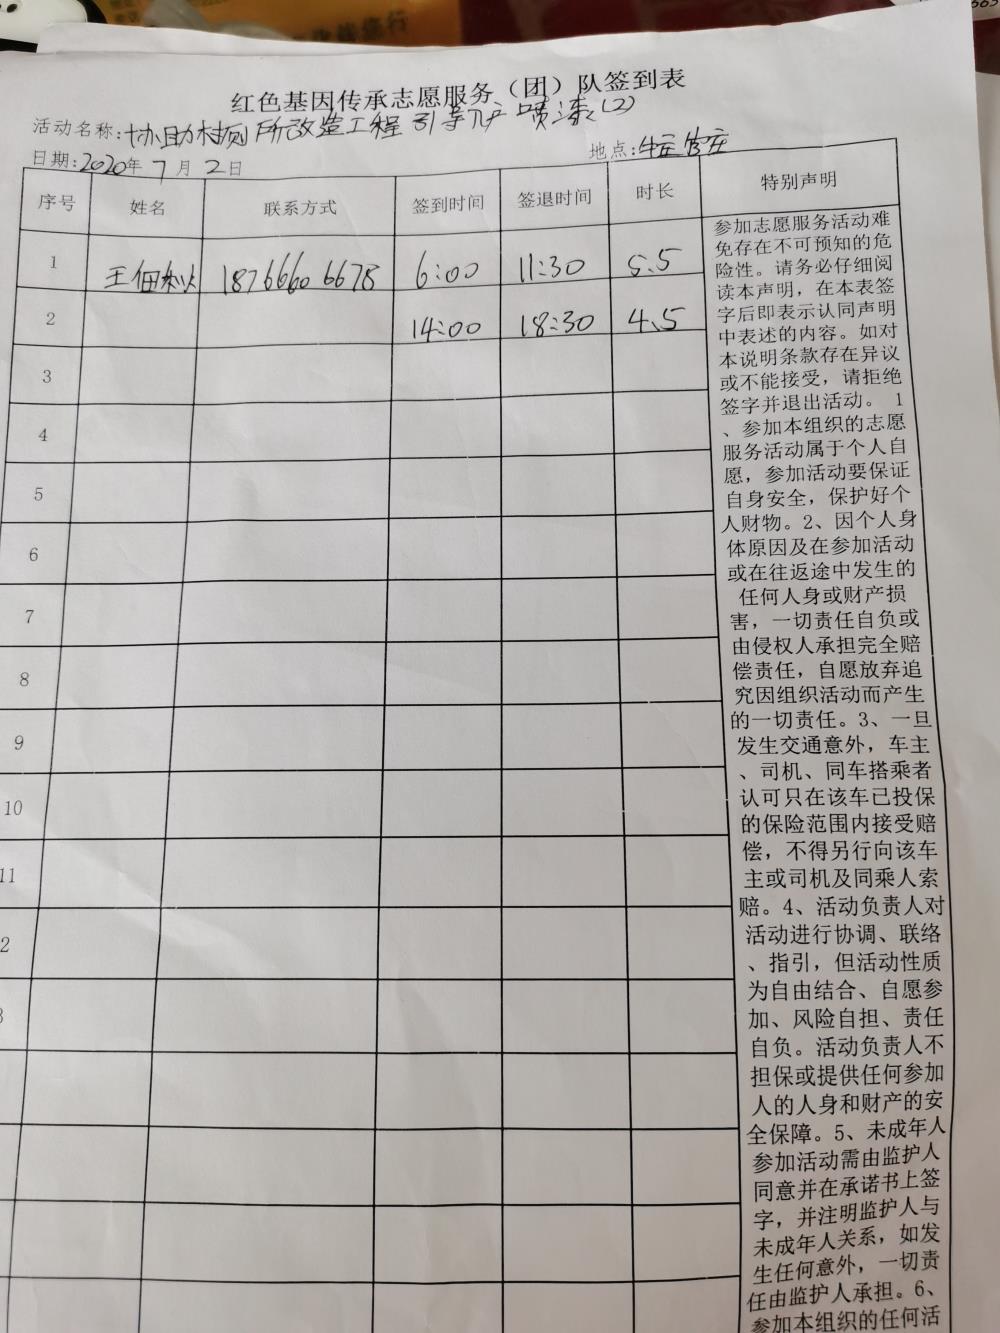 红色基因传承志愿服务（团）队签到表
活动名称:协助村厕所改造工程引导入户喷漆(2)
日期:2020年7月2日
地点:
序号 姓名 联系方式 签到时间 签退时间 时长 特别声明
1 王佃 18766606678 6:00 11:30 5.5
2 14:00 18:30 4.5
3
4
5
6
7
8
9
10
11
2
3
参加志愿服务活动难
免存在不可预知的危
险性。请务必仔细阅
读本声明，在本表签
字后即表示认同声明
中表述的内容。如对
本说明条款存在异议
或不能接受，请拒绝
签字并退出活动。 1
、参加本组织的志愿
服务活动属于个人自
愿，参加活动要保证
自身安全，保护好个
人财物。2、因个人身
体原因及在参加活动
或在往返途中发生的
任何人身或财产损
害，一切责任自负或
由侵权人承担完全赔
偿责任，自愿放弃追
究因组织活动而产生
的一切责任。3、一旦
发生交通意外，车主
、司机、同车搭乘者
认可只在该车已投保
的保险范围内接受赔
偿，不得另行向该车
主或司机及同乘人索
赔。4、活动负责人对
活动进行协调、联络
、指引，但活动性质
为自由结合、自愿参
加、风险自担、责任
自负。活动负责人不
担保或提供任何参加
人的人身和财产的安
全保障。5、未成年人
参加活动需由监护人
同意并在承诺书上签
字，并注明监护人与
未成年人关系，如发
生任何意外，一切责
任由监护人承担。6、
参加本组织的任何活